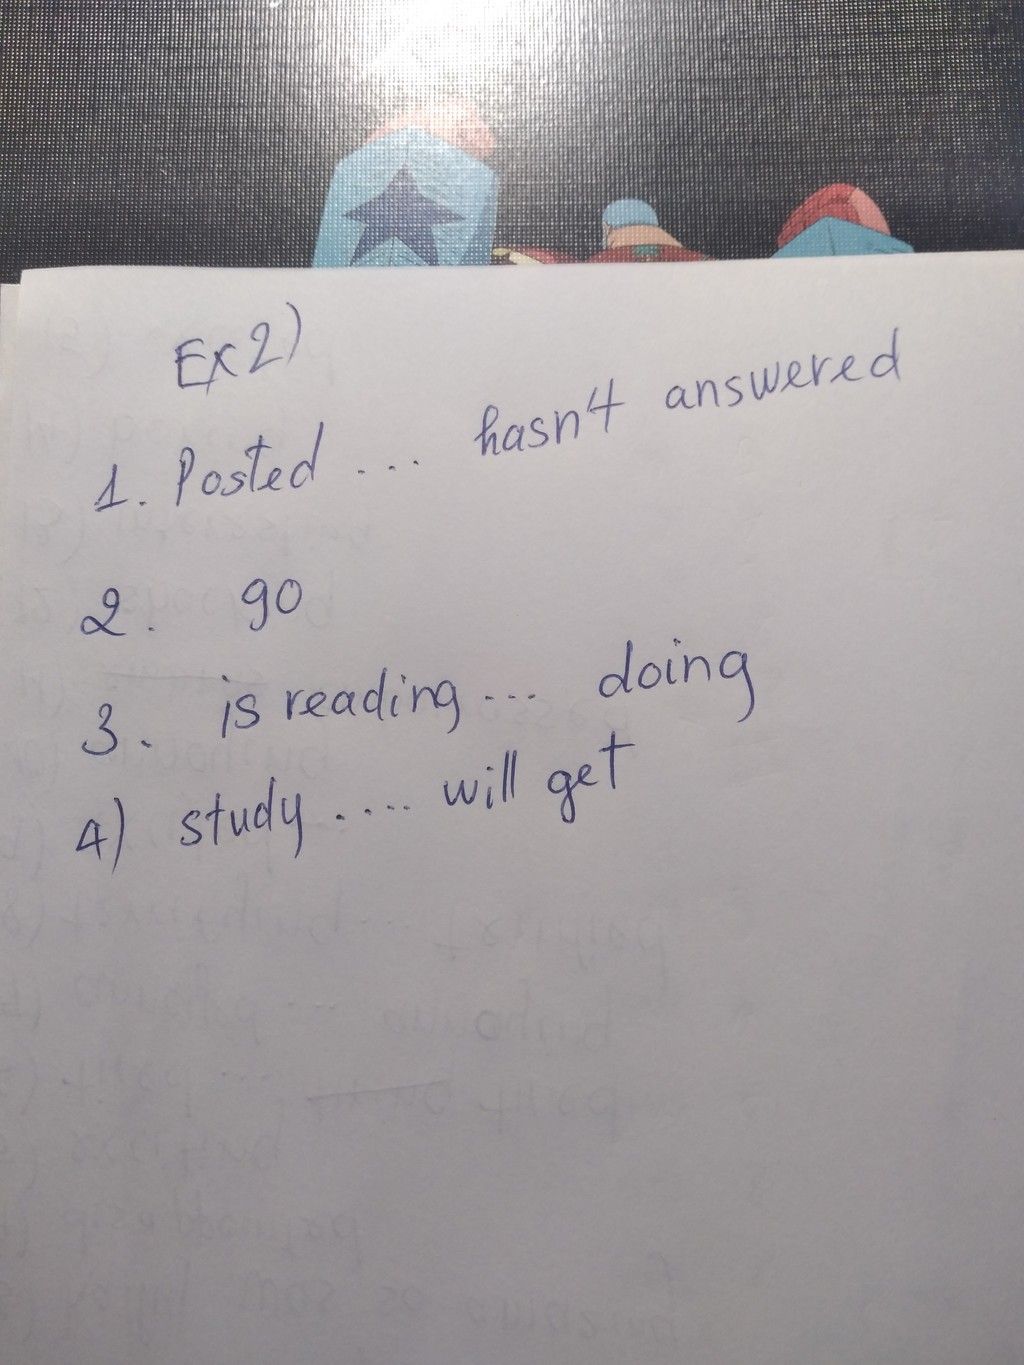 Ex 2)
1. Posted ... hasn't answered
2. go
3. is reading ... doing
4) study .... will get